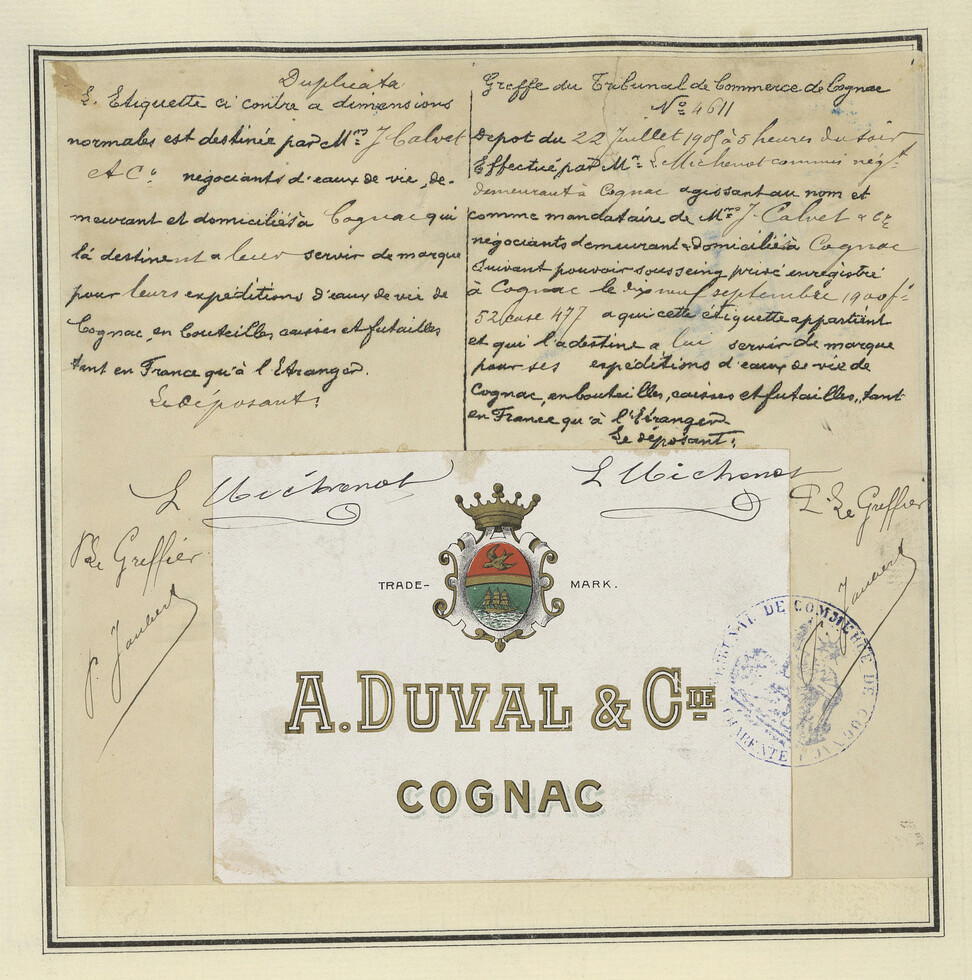 Duplicata
L'Etiquette ci contre a dimensions
normales est destinée par Mrs J Calvet
& Co negociants d'eaux de vie, de-
meurant et domiciliés à Cognac qui
la destinent a leur servir de marque
pour leurs expéditions d'eaux de vie de
Cognac, en bouteilles, caisses et futailles
tant en France qu'à l'Etranger.
Le déposant:
L Michenot
Le Greffier
p. Jaubert
Greffe du Tribunal de Commerce de Cognac
No 4611
Depot du 22 Juillet 1905 à 5 heures du soir
Effectué par Mr L Michenot commis négt
demeurant à Cognac agissant au nom et
comme mandataire de Mrs J. Calvet & Cie
négociants demeurant & domiciliés à Cognac
Suivant pouvoir sous seing privé enregistré
à Cognac le dix neuf septembre 1900 fo
52 case 477 a qui cette étiquette appartient
et qui l'a destine a lui servir de marque
pour ses expéditions d'eaux de vie de
Cognac, en bouteilles, caisses et futailles, tant
en France qu'à l'Etranger
Le déposant:
L Michenot
P. Le Greffier
Jaubert
TRADE-MARK.
A. DUVAL & CIE
COGNAC
TRIBUNAL DE COMMERCE DE COGNAC
CHARENTE